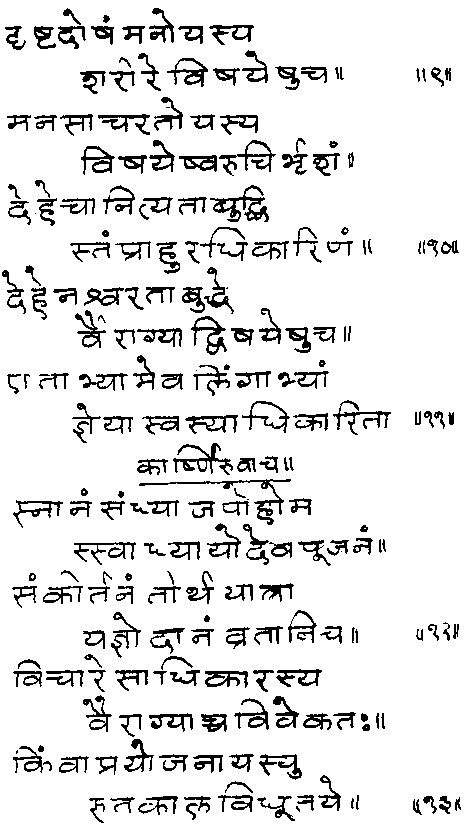 दृष्टदोषं मनो यस्य
शरीरे विषयेषु च॥ ॥९॥
मनसा चरतो यस्य
विषयेष्वरुचिर्भृशं॥
देहे चानित्यता बुद्धि
स्तं प्राहुरधिकारिणं॥ ॥१०॥
देहे नश्वरता बुद्धे
र्वैराग्याद्विषयेषु च॥
एताभ्यामेव लिंगाभ्यां
ज्ञेया स्वस्याधिकारिता ॥११॥
कार्ष्णिरुवाच॥
स्नानं संध्या जपो होम
स्स्वाध्यायो देवपूजनं॥
संकीर्तनं तीर्थयात्रा
यज्ञो दानं व्रतानि च॥ ॥१२॥
विचारे साधिकारस्य
वैराग्याच्च विवेकतः॥
किं वा प्रयोजनाय स्यु
रुत कालविधूतये॥ ॥१३॥